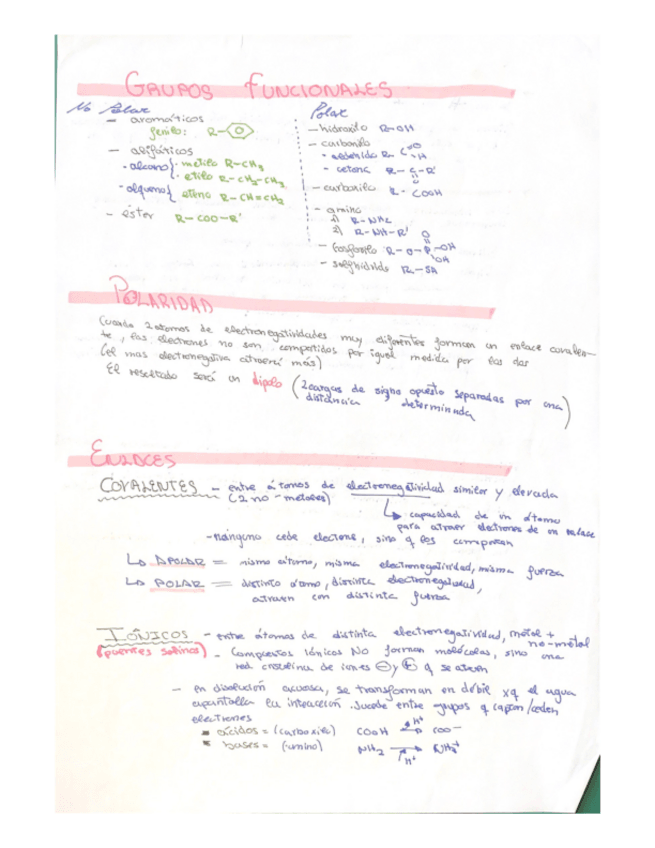 GRUPOS FUNCIONALES
No Polar
- aromáticos
fenilo: R-
- alifáticos
- alcano { · metilo R-CH3
· etilo R-CH2-CH3
- alqueno { eteno R-CH=CH2
- éster R-COO-R'
Polar
- hidroxilo R-OH
- carbonilo
- aldehído R-C O H
- cetona R-C-R'
O
- carboxilo R-COOH
- amino
1) R-NH2
2) R-NH-R'
- fosforilo R-O-P-OH
O
OH
- sulfhidrilo R-SH
POLARIDAD
Cuando 2 atomos de electronegatividades muy diferentes forman un enlace covalen-
te, los electrones no son compartidos por igual medida por las dos
(el mas electronegativo atraerá más)
El resultado será un dipolo (2 cargas de signo opuesto separadas por una
distancia determinada)
ENLACES
COVALENTES - entre átomos de electronegatividad similar y elevada
(2 no-metales)
↳ capacidad de un átomo
para atraer electrones de un enlace
- ninguno cede electrons, sino q los comparten
↳ APOLAR = mismo átomo, misma electronegatividad, misma fuerza
↳ POLAR = distinto átomo, distinta electronegatividad,
atraen con distinta fuerza
IÓNICOS - entre átomos de distinta electronegatividad, metal +
no-metal
(puentes salinos) - Compuestos iónicos NO forman moléculas, sino una
red cristalina de iones ⊖ y ⊕ q se atraen
- en disolución acuosa, se transforman en débil xq el agua
apantalla la interacción. Sucede entre grupos q captan/ceden
electrones
* ácidos = (carboxilo) COOH H+ COO-
* bases = (amino) NH2 H+ NH3+